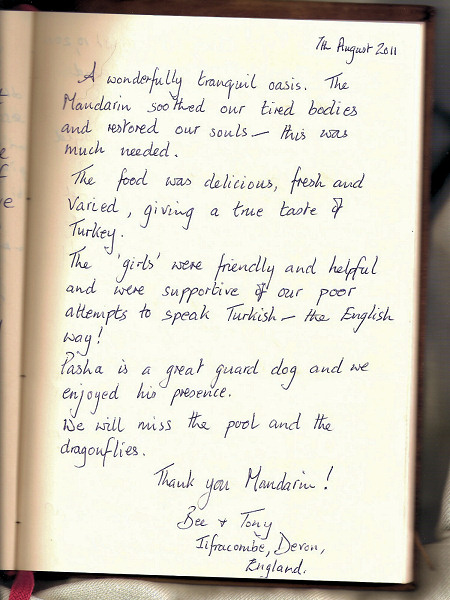 7th August 2011
A wonderfully tranquil oasis. The
Mandarin soothed our tired bodies
and restored our souls – this was
much needed.
The food was delicious, fresh and
varied, giving a true taste of
Turkey.
The 'girls' were friendly and helpful
and were supportive of our poor
attempts to speak Turkish – the English
way!
Pasha is a great guard dog and we
enjoyed his presence.
We will miss the pool and the
dragonflies.
Thank you Mandarin!
Bee + Tony
Ilfracombe, Devon,
England.